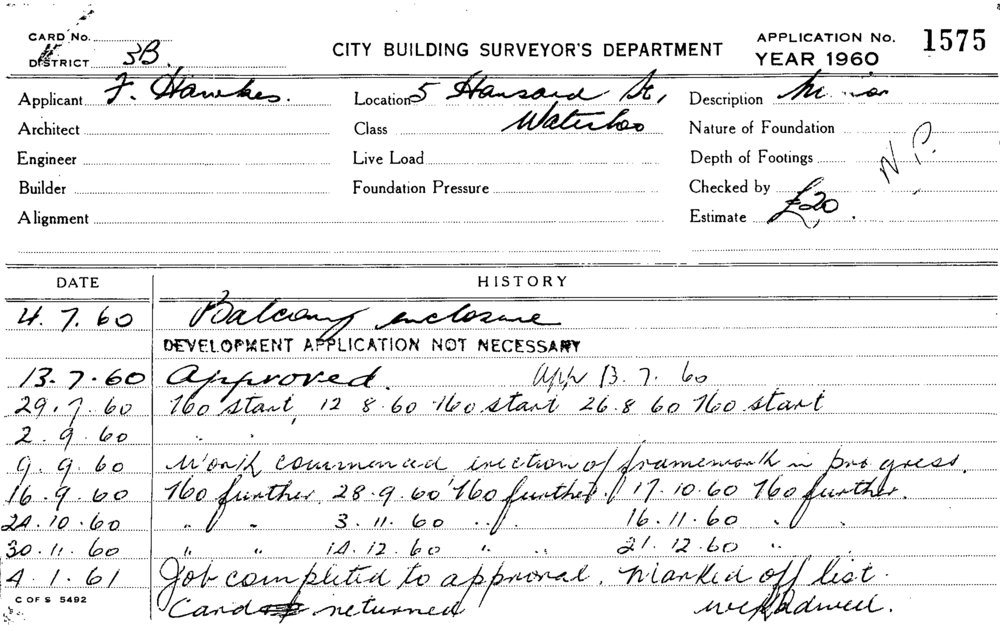 CARD No.
DISTRICT 3B
CITY BUILDING SURVEYOR'S DEPARTMENT
APPLICATION No. 1575
YEAR 1960
Applicant F. Hawkes.
Location 5 Hansard St,
Description Minor
Architect
Class Waterloo
Nature of Foundation
Engineer
Live Load
Depth of Footings N.P.
Builder
Foundation Pressure
Checked by
Alignment
Estimate £20.
DATE HISTORY
4.7.60 Balcony enclosure
DEVELOPMENT APPLICATION NOT NECESSARY
13.7.60 Approved. App 13.7.60
29.7.60 No start, 12 8.60 No start 26.8 60 No start
2.9.60 " "
9.9.60 Work commenced erection of framework in progress.
16.9.60 No further. 28.9.60 No further. 17.10.60 No further.
24.10.60 " " 3.11.60 " " 16.11.60 "
30.11.60 " " 14.12.60 " " 21.12.60 "
4.1.61 Job completed to approval. Marked off list.
C OF S 5492
Card returned